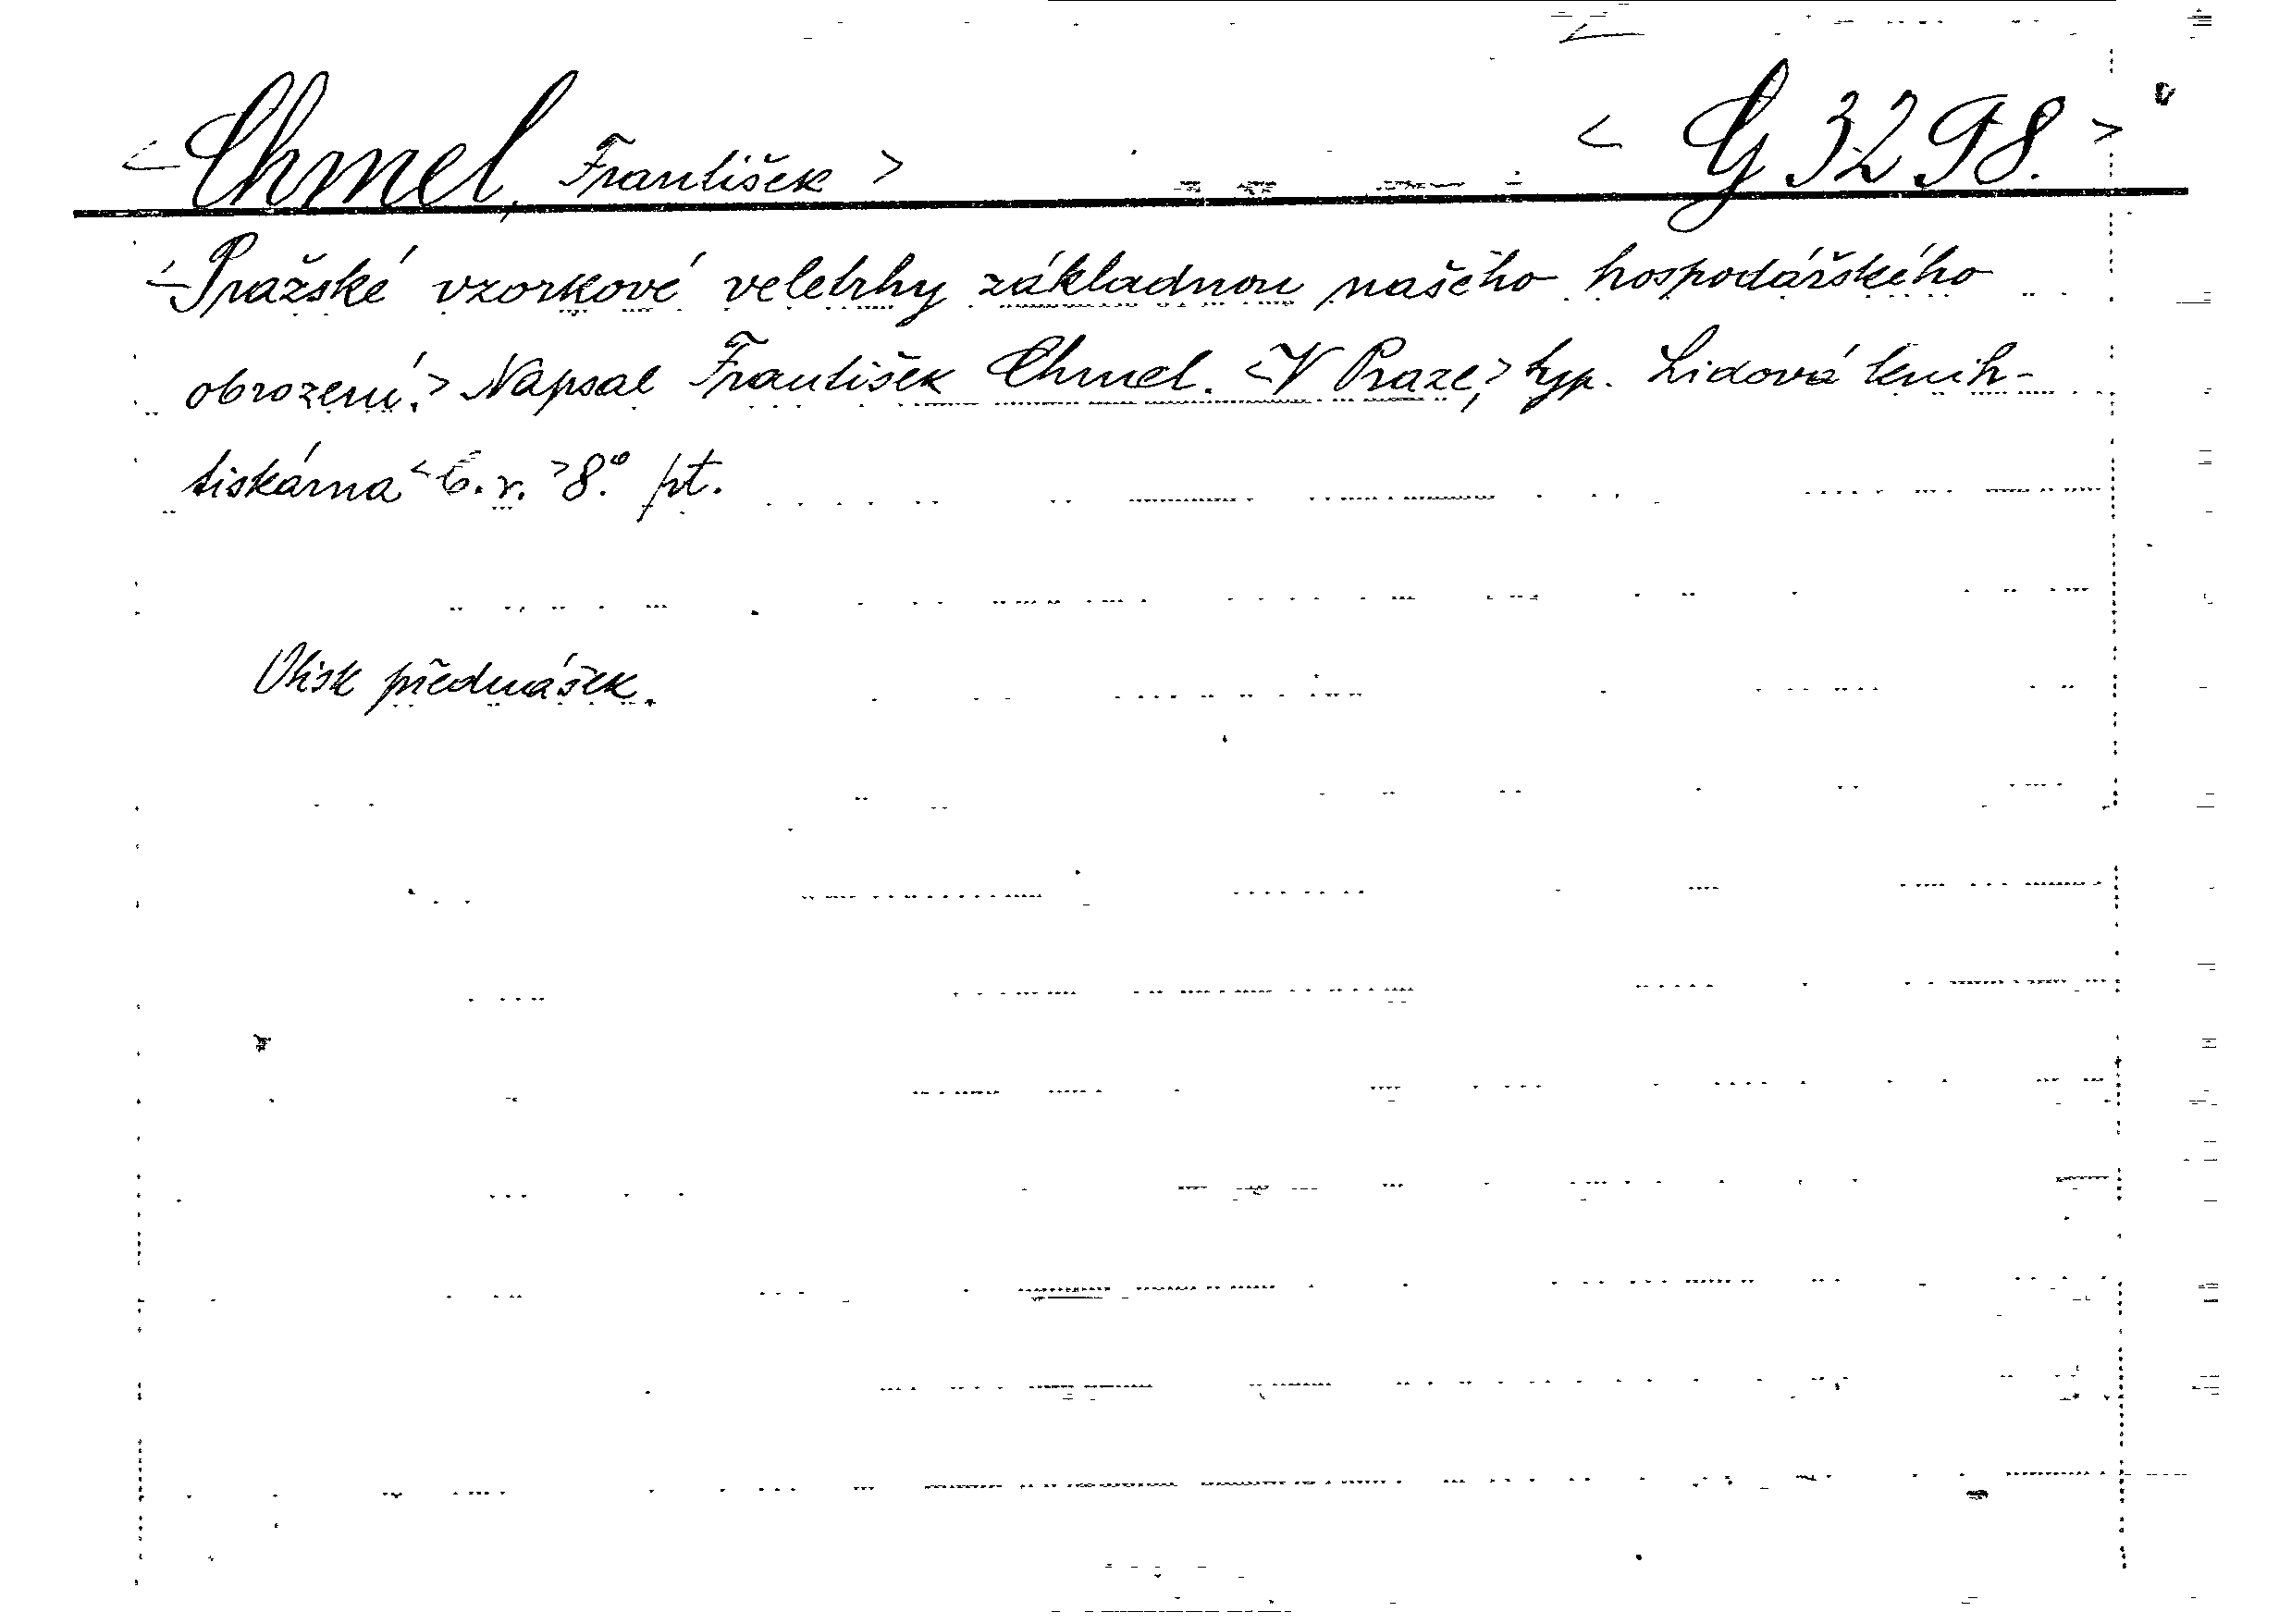 <Chmel, František> <G 3298.>
<Pražské vzorkové veletrhy základnou našeho hospodářského
obrození.> Napsal František Chmel. <V Praze,> typ. Lidová knih-
tiskárna <b. r.> 8.° pt.
Otisk přednášek.